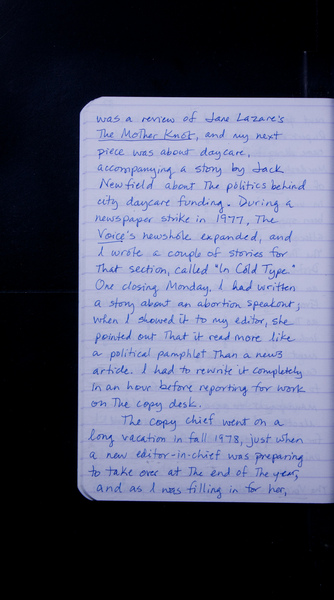 was a review of Jane Lazare's
The Mother Knot, and my next
piece was about daycare,
accompanying a story by Jack
Newfield about the politics behind
city daycare funding. During a
newspaper strike in 1977, The
Voice's newshole expanded, and
I wrote a couple of stories for
that section, called "In Cold Type."
One closing Monday, I had written
a story about an abortion speakout;
when I showed it to my editor, she
pointed out that it read more like
a political pamphlet than a news
article. I had to rewrite it completely
in an hour before reporting for work
on the copy desk.
The copy chief went on a
long vacation in fall 1978, just when
a new editor-in-chief was preparing
to take over at the end of the year,
and as I was filling in for her,